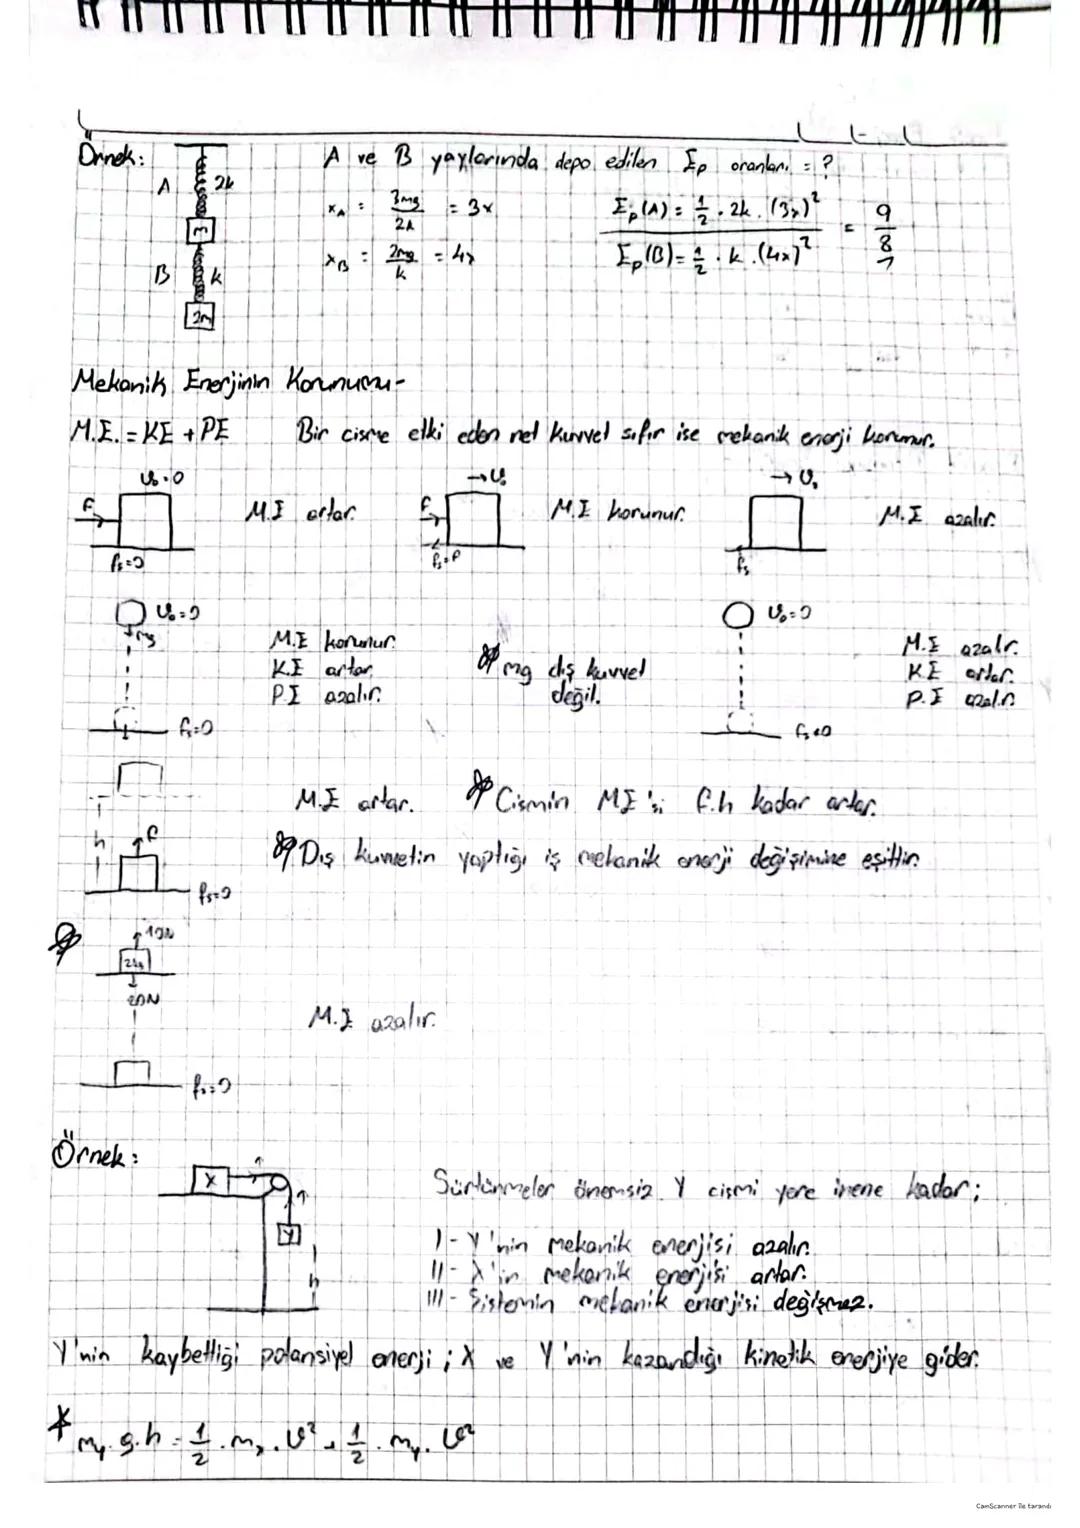 Örnek:
A ve B yaylarında depo edilen Ep oranları = ?
A 2k
m
B k
2m
xA = 3mg / 2k = 3x
xB = 2mg / k = 4x
Ep(A) = 1/2 . 2k . (3x)² / Ep(B) = 1/2 . k . (4x)² = 9/8
Mekanik Enerjinin Korunumu-
M.E. = KE + PE Bir cisme etki eden net kuvvet sıfır ise mekanik enerji korunur.
V₀=0
F
fs=0
M.E artar.
F
fs=F
M.E korunur.
fs
M.E azalır.
V₀=0
mg
fs=0
M.E korunur.
K.E artar.
P.E azalır.
mg dış kuvvet
değil.
V₀=0
fs≠0
M.E azalır.
K.E artar.
P.E azalır.
h
F
fs=0
M.E artar. Cismin ME'si F.h kadar artar.
Dış kuvvetin yaptığı iş mekanik enerji değişimine eşittir.
10N
2kg
20N
fs=0
M.E azalır.
Örnek:
X
Y
h
Sürtünmeler önemsiz. Y cismi yere inene kadar;
I- Y'nin mekanik enerjisi azalır.
II- X'in mekanik enerjisi artar.
III- Sistemin mekanik enerjisi değişmez.
Y'nin kaybettiği potansiyel enerji; X ve Y'nin kazandığı kinetik enerjiye gider.
* my.g.h = 1/2 . mx . V² + 1/2 . my . V²
CamScanner ile tarandı